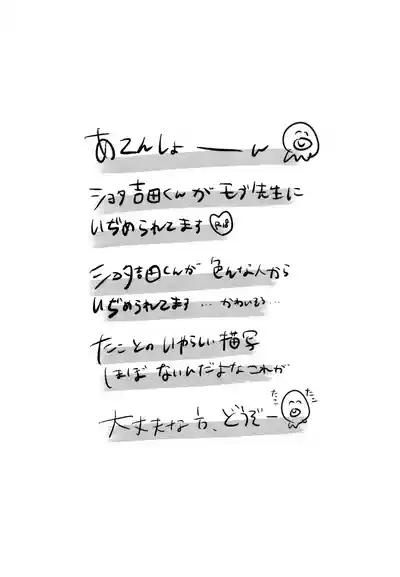 あてんしょーーん
ショタ吉田くんがモブ先生に
いぢめられてます R18
ショタ吉田くんが色んな人から
いぢめられてます…かわいそう…
たことのいやらしい描写
ほぼないんだよなこれが
大丈夫な方、どうぞー
たこ
たこ